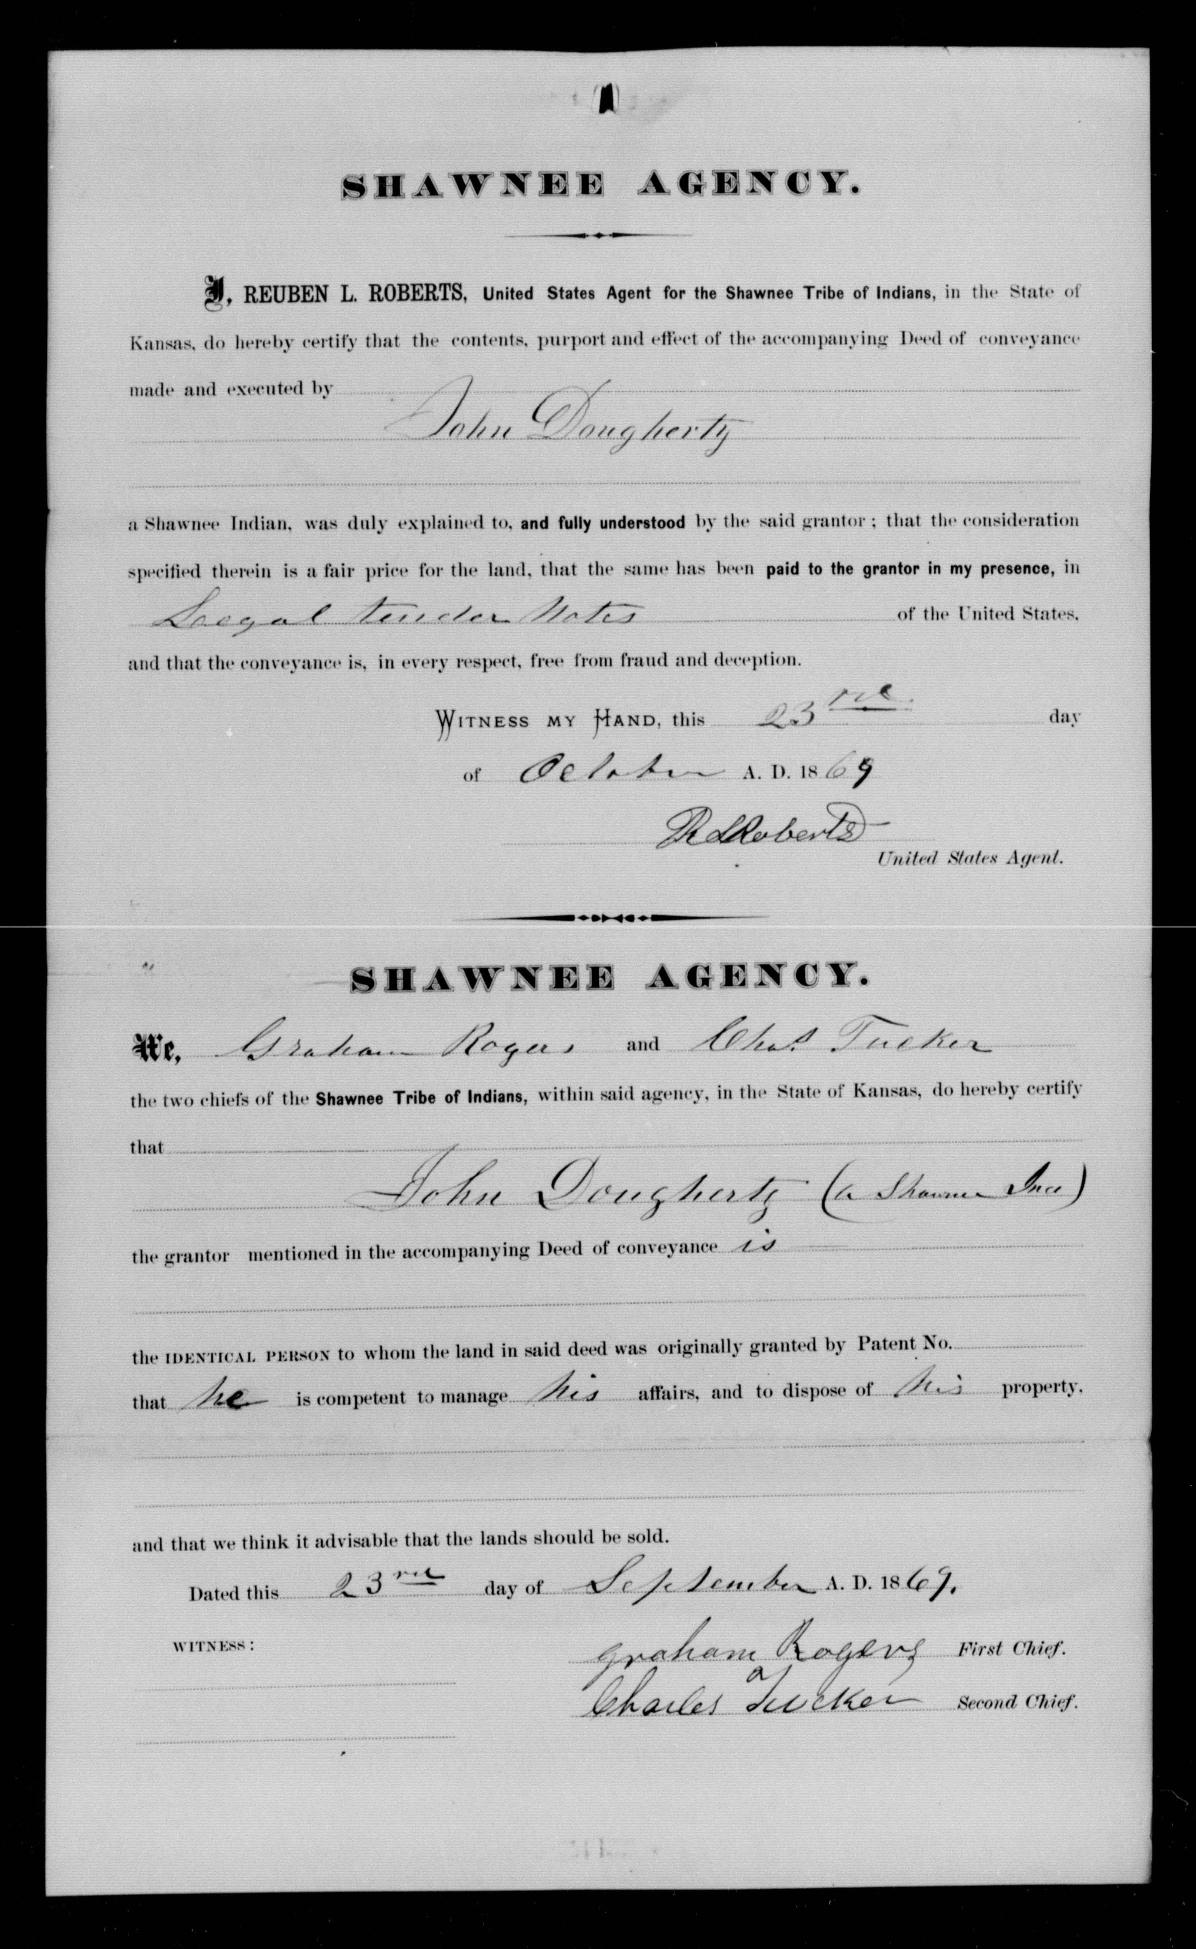 SHAWNEE AGENCY.
I, REUBEN L. ROBERTS, United States Agent for the Shawnee Tribe of Indians, in the State of
Kansas, do hereby certify that the contents, purport and effect of the accompanying Deed of conveyance
made and executed by
John Dougherty
a Shawnee Indian, was duly explained to, and fully understood by the said grantor; that the consideration
specified therein is a fair price for the land, that the same has been paid to the grantor in my presence, in
Leegal tender Notes of the United States,
and that the conveyance is, in every respect, free from fraud and deception.
WITNESS MY HAND, this 23rd day
of October A. D. 1869
R L Roberts
United States Agent.
SHAWNEE AGENCY.
We, Graham Rogers and Chas Tucker
the two chiefs of the Shawnee Tribe of Indians, within said agency, in the State of Kansas, do hereby certify
that
John Dougherty (a Shawnee Ind)
the grantor mentioned in the accompanying Deed of conveyance is
the IDENTICAL PERSON to whom the land in said deed was originally granted by Patent No.
that he is competent to manage his affairs, and to dispose of his property,
and that we think it advisable that the lands should be sold.
Dated this 23rd day of September A. D. 1869.
WITNESS:
graham Rogers First Chief.
Charles Tucker Second Chief.